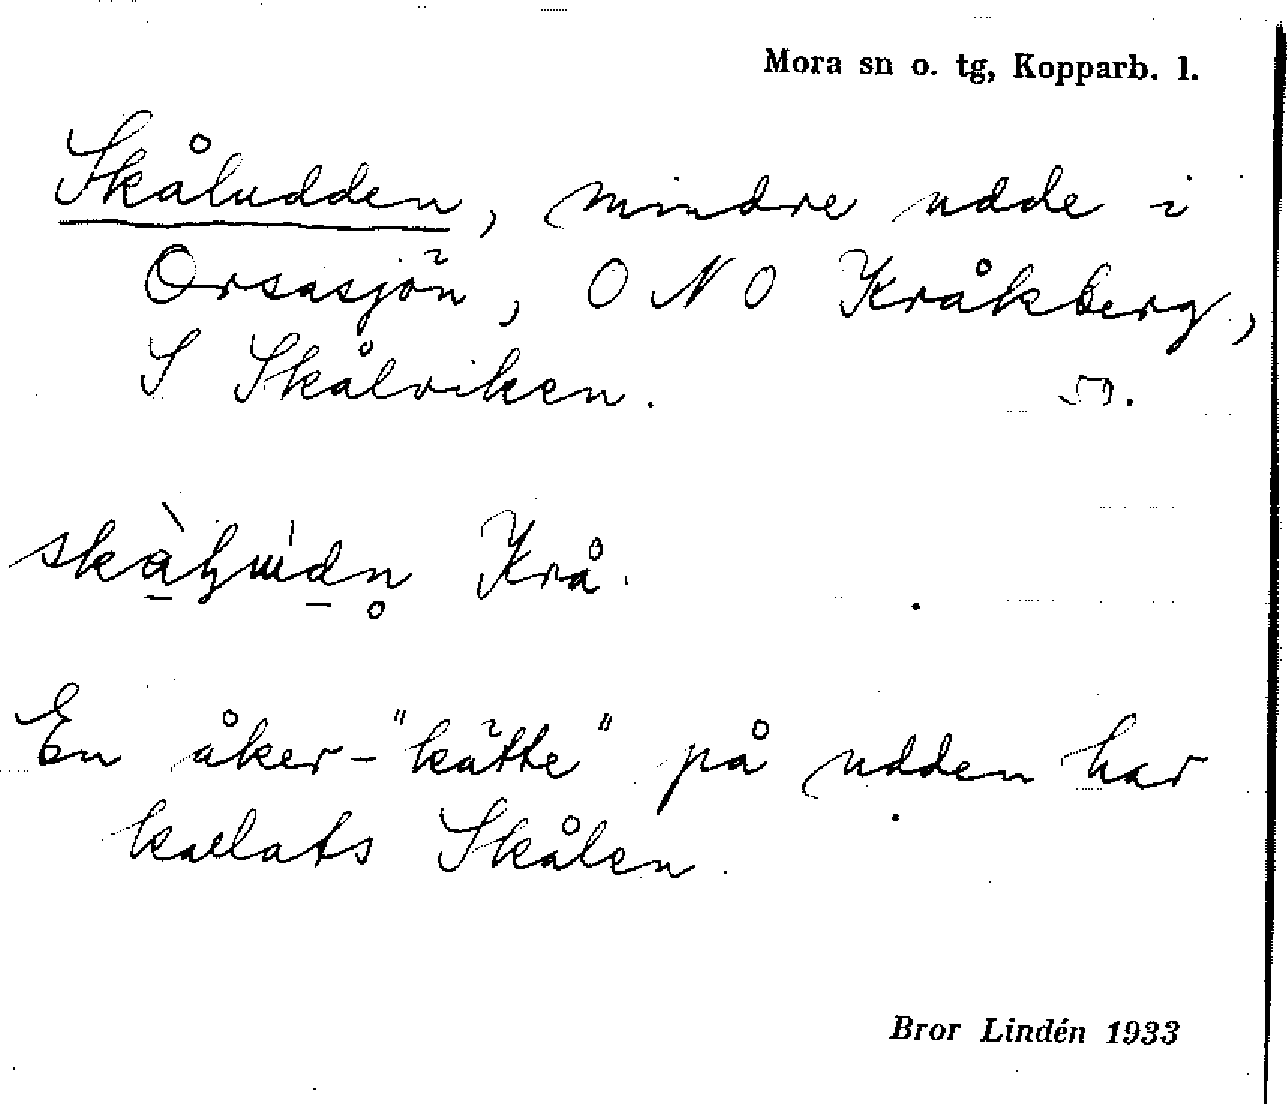 Mora sn o. tg, Kopparb. l.
Skåludden, mindre udde i
Orsasjön, ONO Kråkberg,
S Skålviken.
Krå.
En åker-"kätte" på udden har
kallats Skålen.
Bror Lindén 1933